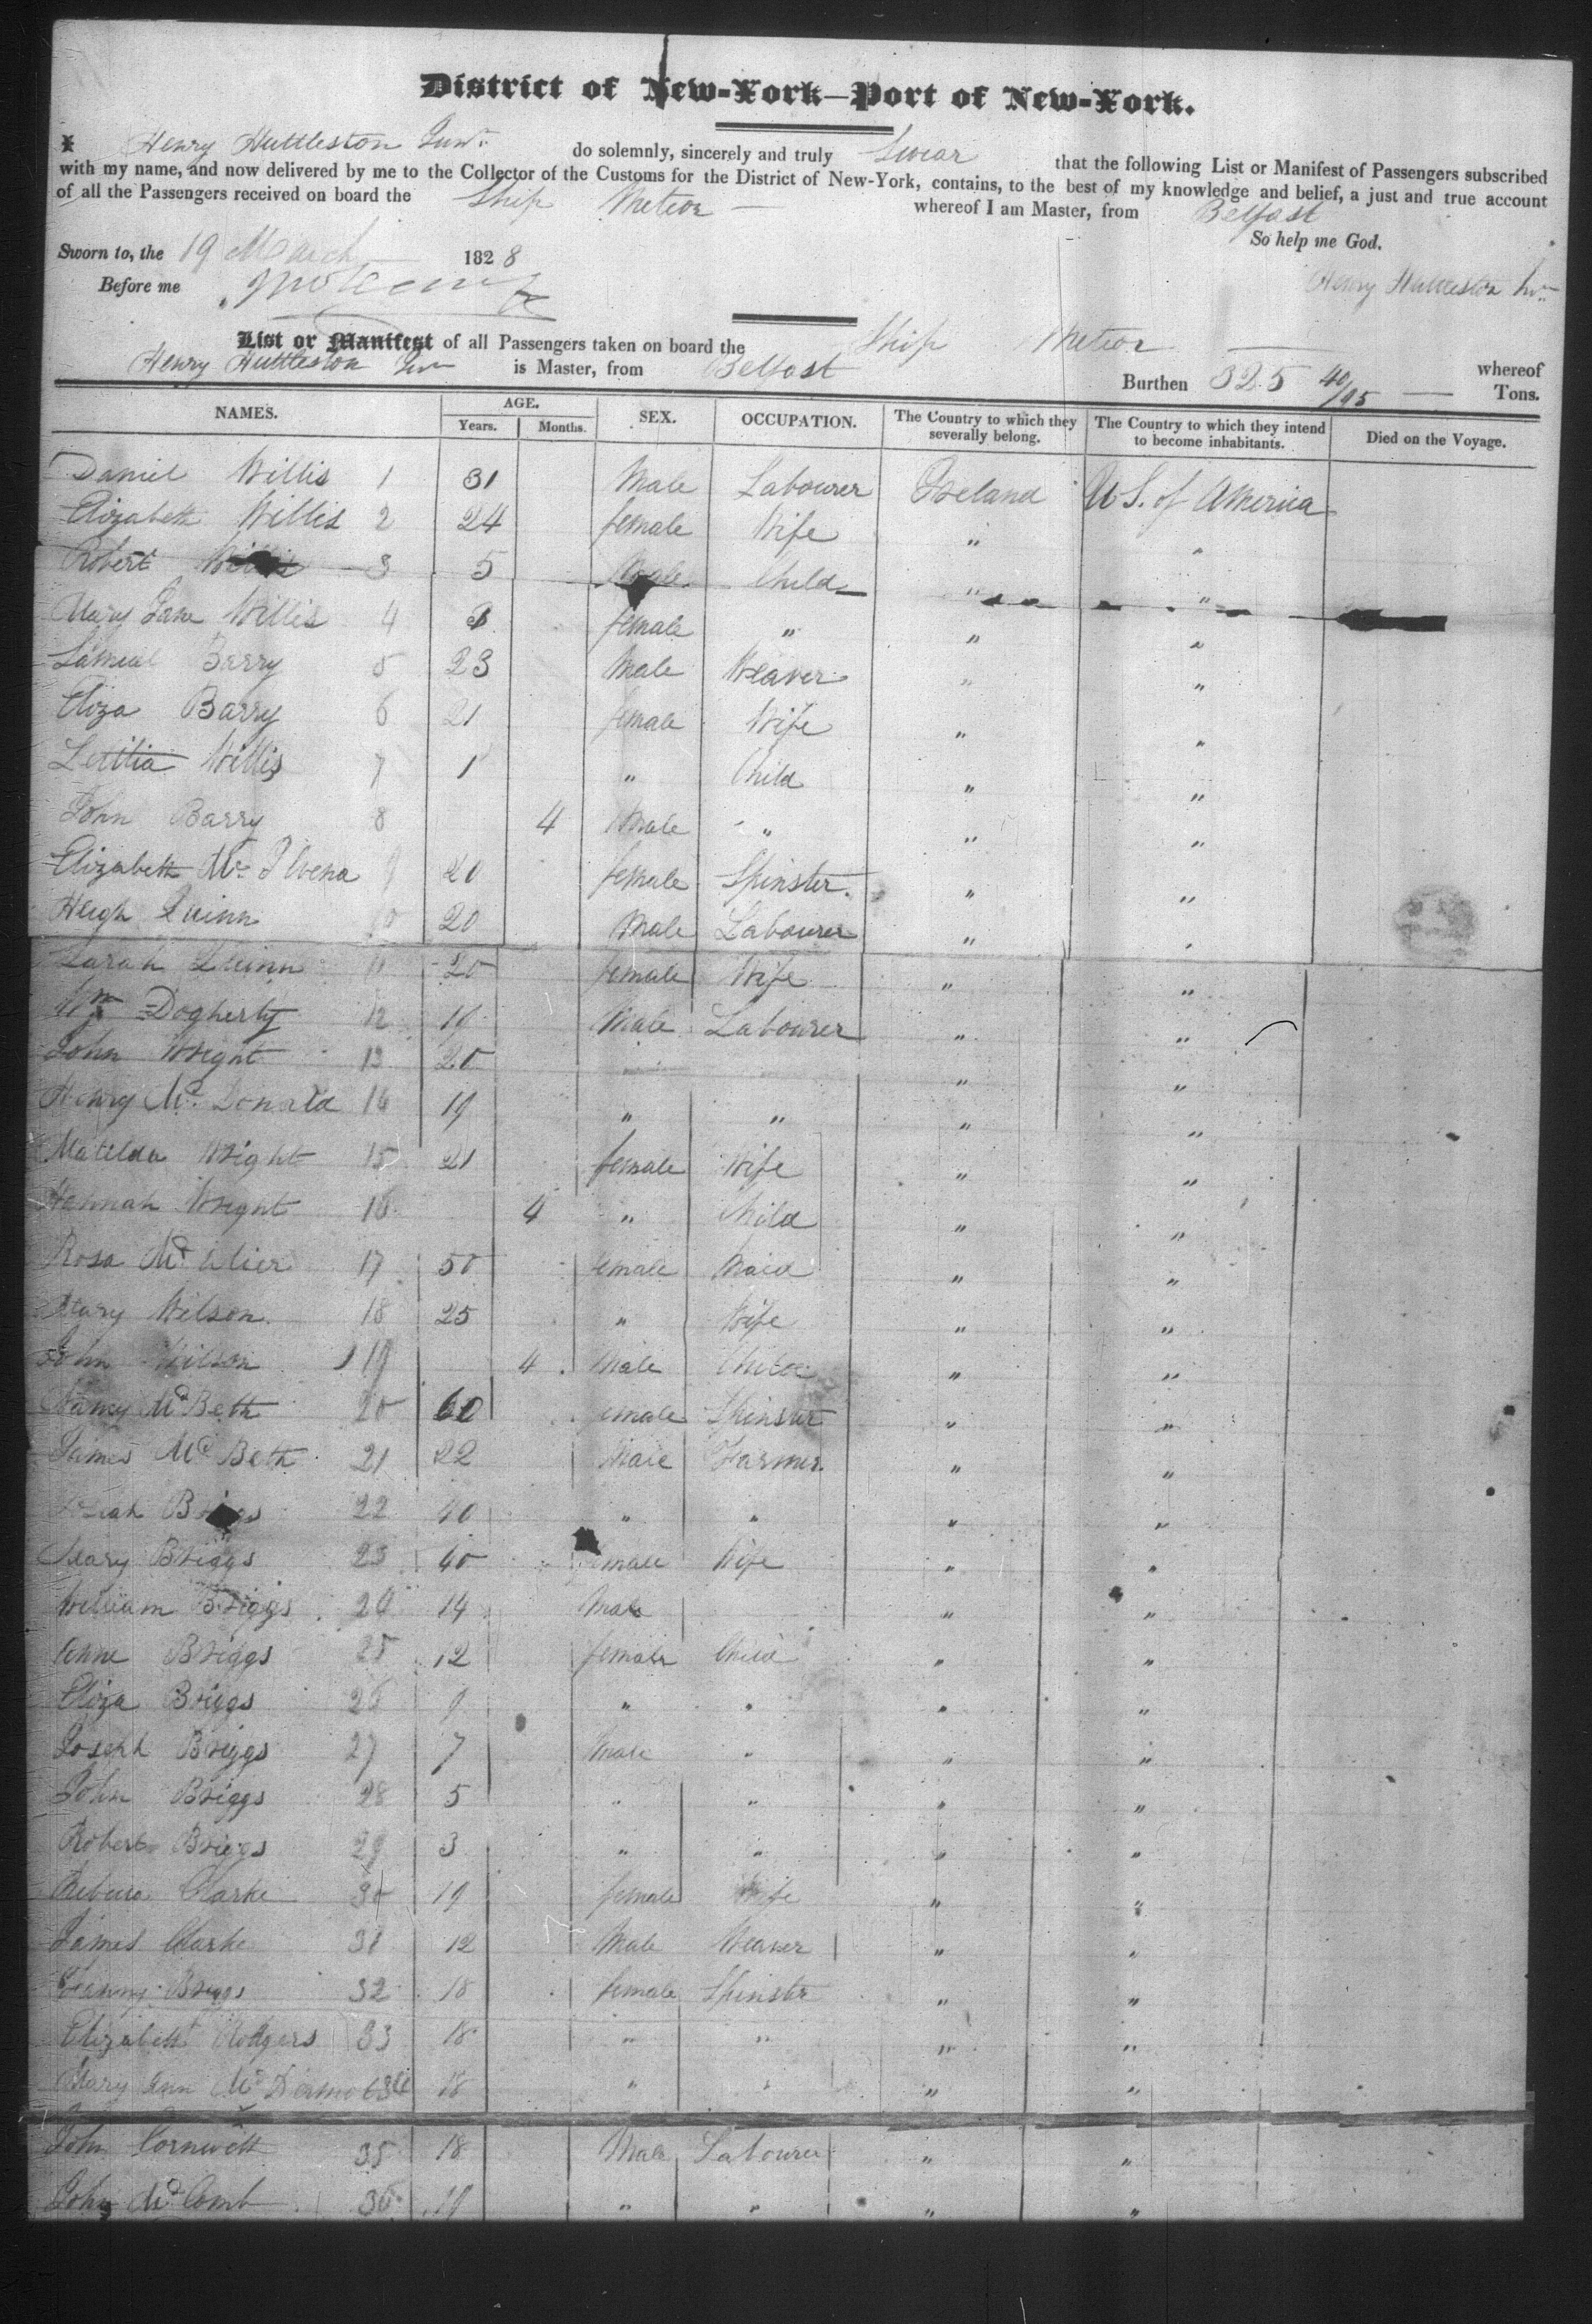 District of New-York—Port of New-York.
I Henry Huttleston Junr. do solemnly, sincerely and truly Swear that the following List or Manifest of Passengers subscribed
with my name, and now delivered by me to the Collector of the Customs for the District of New-York, contains, to the best of my knowledge and belief, a just and true account
of all the Passengers received on board the Ship Meteor whereof I am Master, from Belfast
So help me God.
Sworn to, the 19 March 1828
Before me
Henry Huttleston Jun
List or Manifest of all Passengers taken on board the Ship Meteor whereof
Henry Huttleston Jun is Master, from Belfast Burthen 325 40/95 Tons.
NAMES. AGE. Years. Months. SEX. OCCUPATION. The Country to which they severally belong. The Country to which they intend to become inhabitants. Died on the Voyage.
Daniel Willis 1 31 Male Labourer Ireland U S. of America
Elizabeth Willis 2 24 female Wife " "
Robert Willis 3 5 Male Child " "
Mary Jane Willis 4 female " " "
Samuel Barry 5 23 Male Weaver " "
Eliza Barry 6 21 female Wife " "
Letitia Willis 7 1 " Child " "
John Barry 8 4 Male " " "
Elizabeth Mc 9 20 female Spinster " "
Hugh Quinn 10 20 Male Labourer " "
Sarah Quinn 11 20 female Wife " "
Wm Dogherty 12 19 Male Labourer " "
John Wright 13 20 " "
Henry Mc Donald 14 19 " " " "
Matilda Wright 15 21 female Wife " "
Hannah Wright 16 4 " Child " "
Rosa Mc 17 50 female Maid " "
Mary Wilson 18 25 " Wife " "
John Wilson 19 4 Male Child " "
Nancy Mc Beth 20 60 female Spinster " "
James Mc Beth 21 22 Male Farmer " "
Briggs 22 40 " " " "
Mary Briggs 23 40 female Wife " "
William Briggs 24 14 Male " "
Anne Briggs 25 12 female Child " "
Eliza Briggs 26 9 " " " "
Joseph Briggs 27 7 Male " " "
John Briggs 28 5 " " " "
Robert Briggs 29 3 " " " "
Rebecca Clarke 30 19 female Wife " "
James Clarke 31 12 Male Weaver " "
Briggs 32 18 female Spinster " "
Elizabeth Rodgers 33 18 " " " "
Mary Ann Mc 34 18 " " " "
John 35 18 Male Labourer " "
John Mc Comb 36 19 " " " "